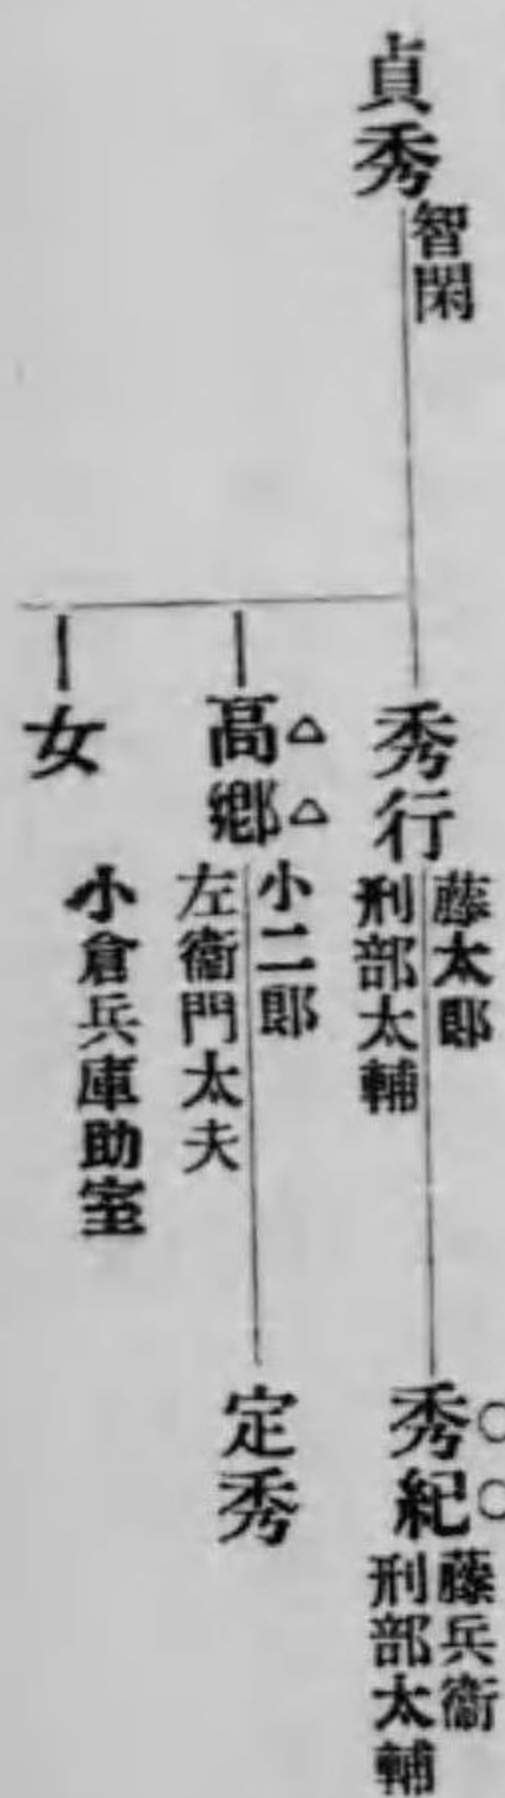 貞秀
智閑
秀行
藤太郎
刑部太輔
秀紀
藤兵衞
刑部太輔
高郷
小二郎
左衞門太夫
定秀
女
小倉兵庫助室